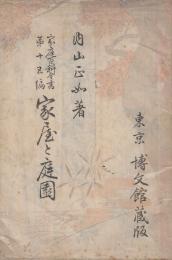 東京 博文館蔵版
内山正如著
家庭百科全書
第十五編
家屋と庭園